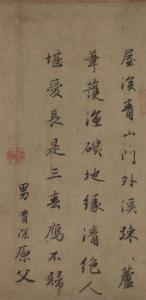 屋後青山門外溪踈〻蘆
葦護漁磯地緣清絕人
堪愛長是三春鴈不歸
男資深原父